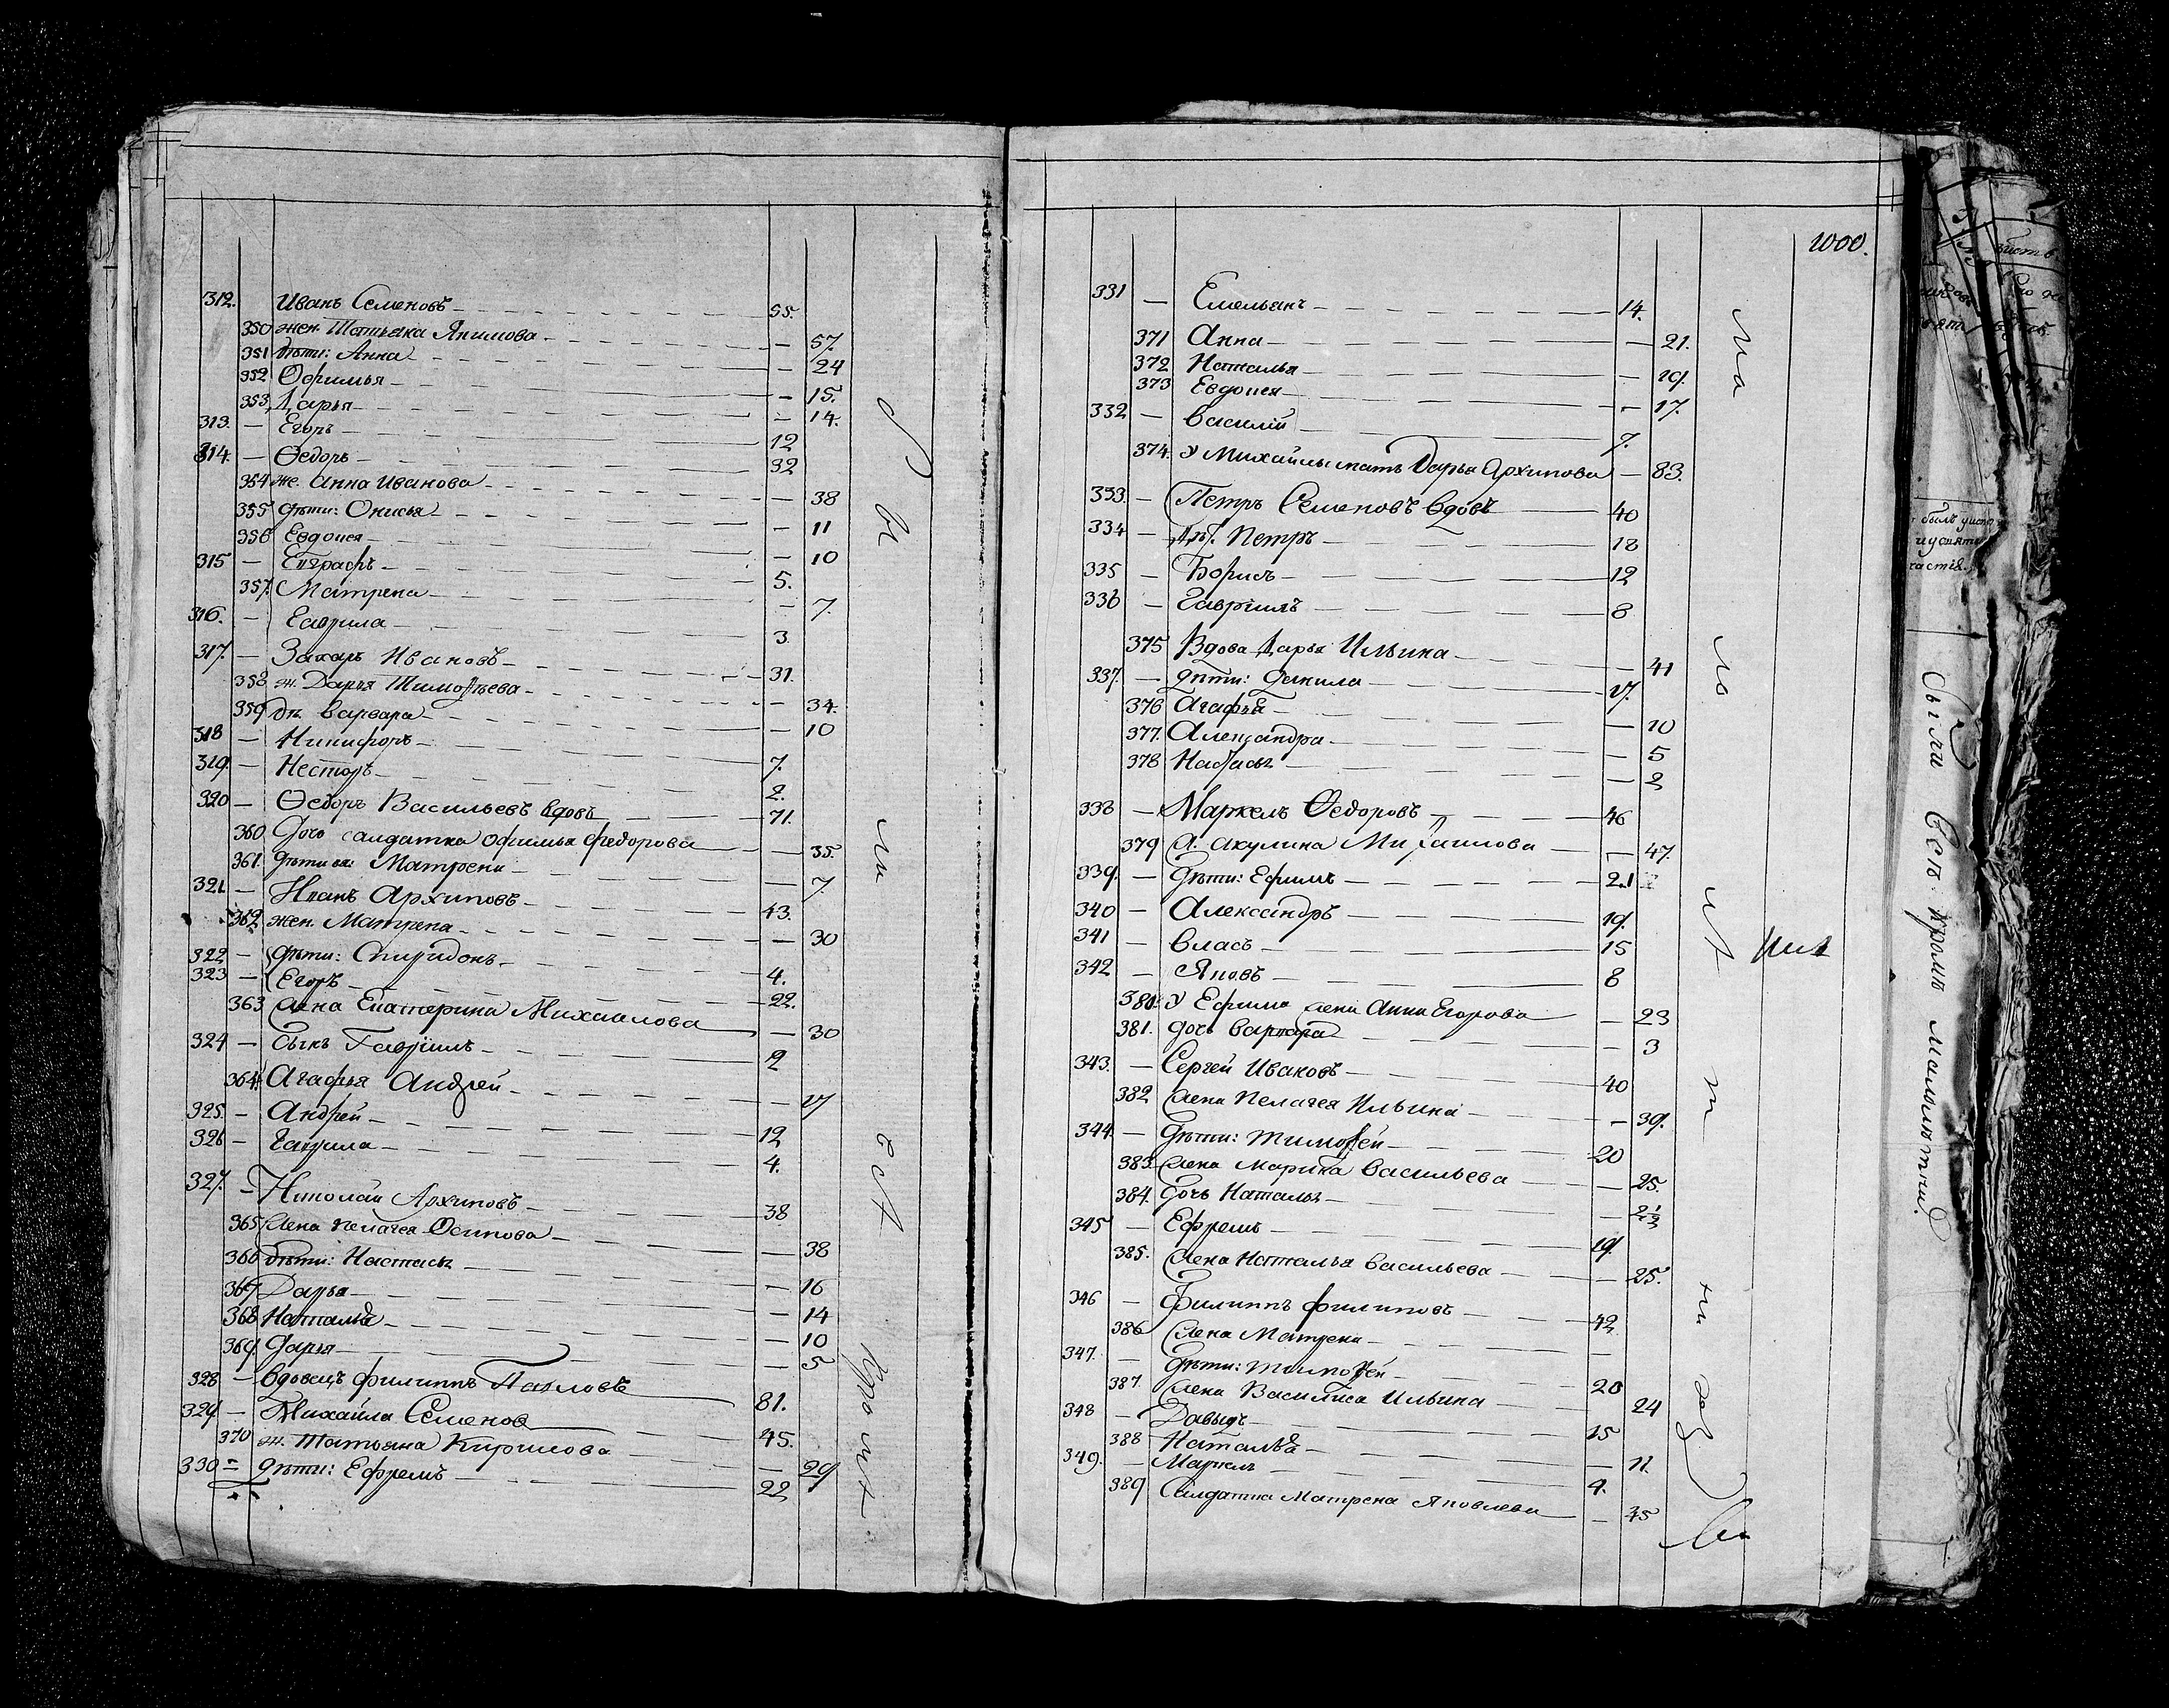 312. Иванъ Семеновъ 55.
350 жен. Татьяна Якимова — 57.
351 дѣти: Анна — 24
352 Офимья — 15.
353 Дарья — 14.
313. — Егоръ 12
314. — Ѳедоръ 32
354 же. Анна Иванова — 38
355 дѣти: Онисья — 11
356 Евдокея — 10
315 — Евграфъ 5.
357. Матрена — 7.
316. — Гаврила 3
317. — Захаръ Ивановъ 31.
358 ж. Дарья Тимоѳѣева — 34.
359 дѣ. Варвара — 10
318 — Никифоръ 7.
319. — Несторъ 2.
320 — Ѳедоръ Васильевъ вдовъ 71.
360 дочь салдатка Офимья Федорова — 35.
361. Матрена — 7
321. — Иванъ Архиповъ 43.
362 жен. Матрена — 30
322 — дѣти: Спиридонъ 4.
323 — Егоръ 22.
363 жена Екатерина Михаилова — 30
324 — Сынъ Гавріилъ 2
364. Агафья Андрей — 17
325. — Андрей 12
326 — Гаврила 4.
327. — Николай Архиповъ 38
365 жена Пелагея Осипова — 38
366 дѣти: Настасья — 16
367 Дарья — 14
368 Наталья — 10
369. Дарья — 5
328 — вдовецъ Филиппъ Павловъ 81.
329 — Михайла Семенов 45.
370 ж. Татьяна Кирилова — 29
330 = дѣти: Ефремъ 22
Были всѣ кромѣ
1000.
331 — Емельянъ 14.
371 Анна — 21.
372 Наталья — 19.
373 Евдокея — 17.
332 — Василій 7.
374. У Михайлы мать Дарья Архипова — 83.
333. — Петръ Семеновъ вдовъ 40
334 — Дѣт. Петръ 18
335 — Борисъ 12
336 — Гавріилъ 8
375 Вдова Дарья Ильина — 41
337. — дѣти: Данила 17.
376 Агафья — 10
377. Александра — 5
378 Настасья — 2
338 — Маркелъ Ѳедоровъ 46
379 Ж. Акулина Михаилова — 47.
339. — дѣти: Ефимъ 21
340 — Александръ 19.
341 — Власъ 15
342 — Яковъ 8
380. У Ефима жена Анна Егорова — 23
381. дочь Варвара — 3
343. — Сергей Ивановъ 40
382 жена Пелагея Ильина — 39.
344. — дѣти: Тимоѳей 20
383. жена Марина Васильева — 25.
384. дочь Наталья — 2½
345 — Ефремъ 19.
385. жена Наталья Васильева — 25.
346 — Филиппъ Филиповъ 42
386 жена Матрена —
347. — дѣти: Тимоѳей 20
387 жена Василиса Ильина — 24
348 — Давыдъ 15
388 Наталья — 11.
349. — Маркелъ 9.
389 Салдатка Матрена Яковлева — 45
Были всѣ кромѣ малолѣтнихъ